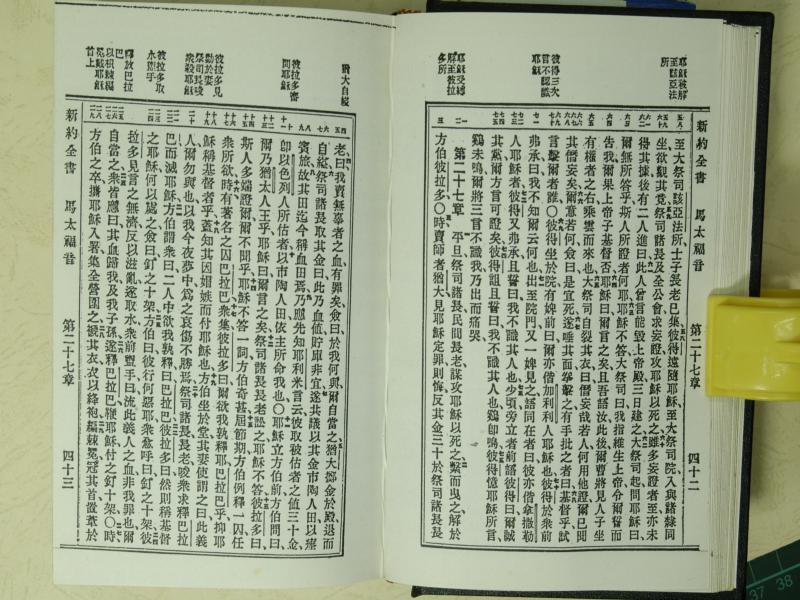 耶穌被解至該亞法所
彼得三次言不認識耶穌
耶穌受縛解至彼拉多所
新約全書　馬太福音　第二十七章　四十二
至大祭司該亞法所士子長老已集彼得遠隨耶穌至大祭司院入與諸隸同
坐欲觀其竟祭司諸長及全公會求妄證攻耶穌以死之雖多妄證者至亦未
得其據後有二人進曰此人曾言能毀上帝殿三日建之大祭司起問耶穌曰
爾無所答乎斯人所證者何耶耶穌不答大祭司曰我指維生上帝令爾誓而
告我爾果上帝子基督否耶穌曰爾言之矣且吾語汝此後爾曹將見人子坐
有權者之右乘雲而來也大祭司自裂其衣曰僭妄哉若人何用他證爾已聞
其僭妄矣爾意若何僉曰是宜死遂唾其面拳擊之有手批之者曰基督乎試
言擊爾者誰○彼得坐於院有婢前曰爾亦偕加利利人耶穌也彼得於衆前
弗承曰我不知爾云何也出至院門又一婢見之語同在者曰彼亦偕拿撒勒
人耶穌者彼得又弗承且誓曰我不識其人也少頃旁立者前語彼得曰爾誠
其黨爾方言可證矣彼得詛且誓曰我不識其人也鷄卽鳴彼得憶耶穌所言
鷄未鳴爾將三言不識我乃出而痛哭
第二十七章　平旦祭司諸長民間長老謀攻耶穌以死之繫而曳之解於
方伯彼拉多○時賣師者猶大見耶穌定罪則悔反其金三十於祭司諸長長
猶大自縊
彼拉多審問耶穌
彼拉多見勸於妻祭司長唆衆殺耶穌
彼拉多取水盥手
釋放巴拉巴
以棘編冕戴耶穌首上
老曰我賣無辜者之血有罪矣僉曰於我何與爾自當之猶大擲金於殿退而
自縊祭司諸長取其金曰此乃血値貯庫非宜遂共議以其金市陶人田以瘞
賓旅故其田迄今稱血田焉乃應先知耶利米言云彼取被估者之値三十金
卽以色列人所估者以市陶人田依主所命我也○耶穌立方伯前方伯問曰
爾乃猶太人王乎耶穌曰爾言之矣祭司諸長長老訟之耶穌不答彼拉多曰
斯人多端證爾爾不聞乎耶穌不答一詞方伯奇甚屆節期方伯例釋一囚任
衆所欲時有著名之囚巴拉巴衆集彼拉多曰爾欲我孰釋巴拉巴乎抑耶
穌稱基督者乎蓋知其因媢嫉而付耶穌也方伯坐於堂其妻使謂之曰此義
人爾勿與也以我今夜夢中爲之哀傷不勝焉祭司諸長長老唆衆求釋巴拉
巴而滅耶穌方伯謂衆曰二人中欲我孰釋曰巴拉巴彼拉多曰然則稱基督
之耶穌何以處之僉曰釘之十架方伯曰彼行何惡耶衆愈呼曰釘之十架彼
拉多見言之無濟反以滋亂遂取水衆前盥手曰流此義人之血非我罪也爾
自當之衆皆應曰其血歸我及我子孫遂釋巴拉巴鞭耶穌付之釘十架○時
方伯之卒攜耶穌入署集全營圍之褫其衣衣以絳袍編棘冕冠其首置葦於
新約全書　馬太福音　第二十七章　四十三
37 38